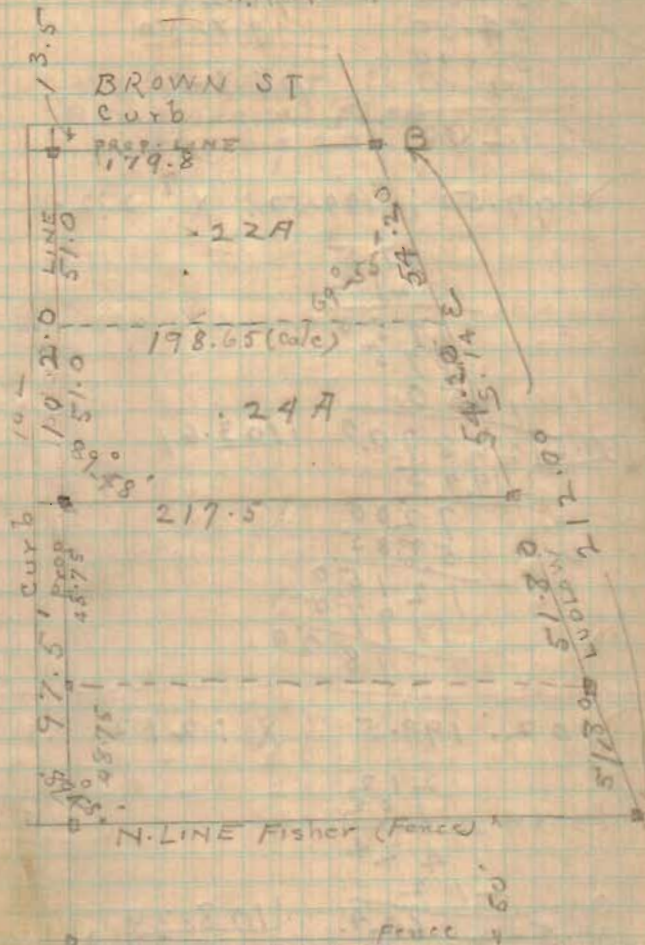 13.5
BROWN ST
Curb
PROP. LINE
179.8
B
LINE
51.0
22A
54.20
69° 55'
198.65 (calc)
102.0
51.0
24A
54.20
55.14
89°
58'
217.5
212.0°
Curb
Prop
48.75
51.80
LUDLOW
97.5'
48.75
51.80
N. LINE Fisher (Fence)
60'
Fence